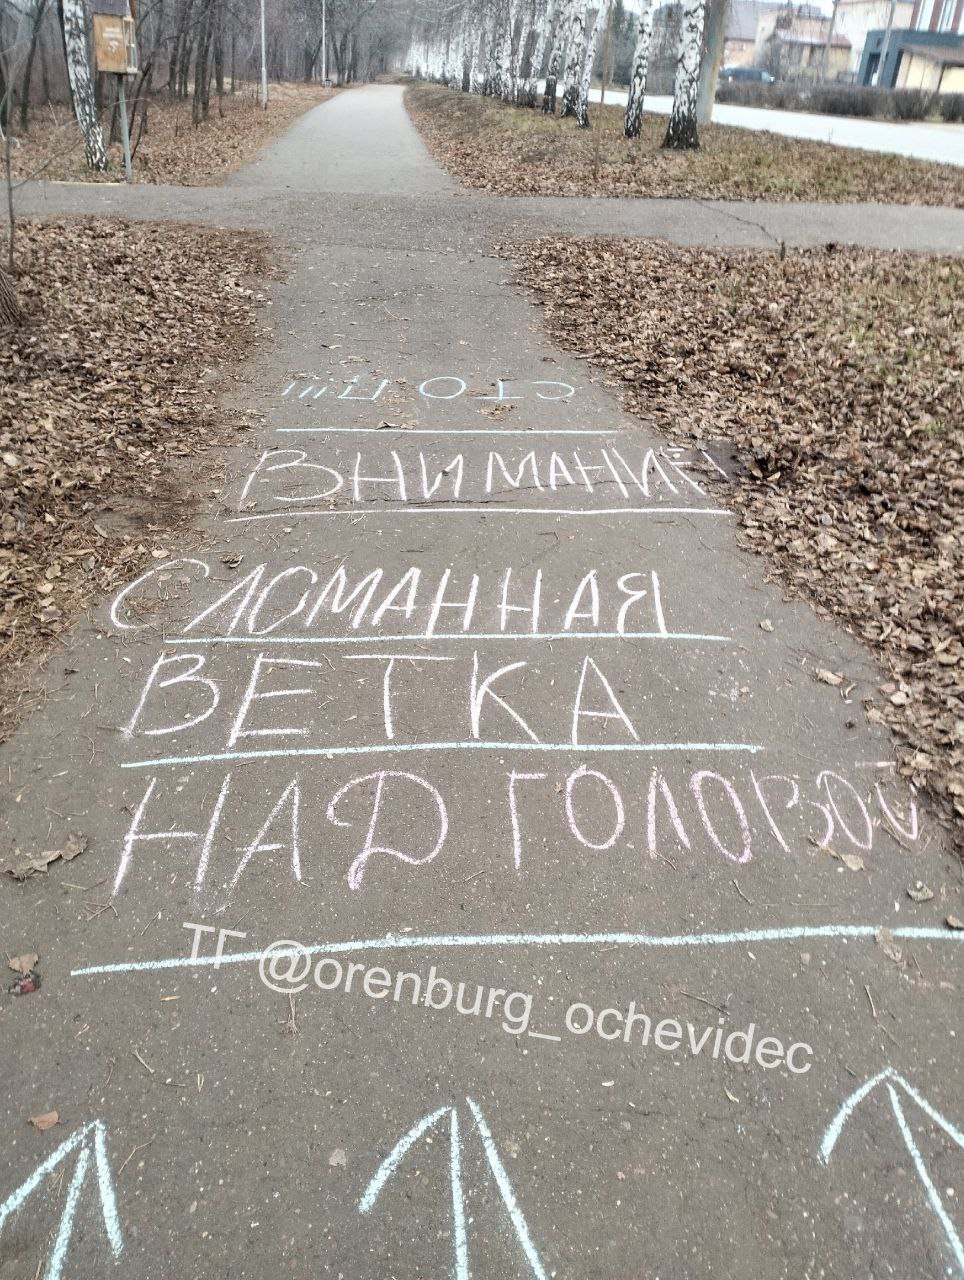 СТОП!!!
ВНИМАНИЕ!
СЛОМАННАЯ
ВЕТКА
НАД ГОЛОВОЙ
ТГ @orenburg_ochevidec